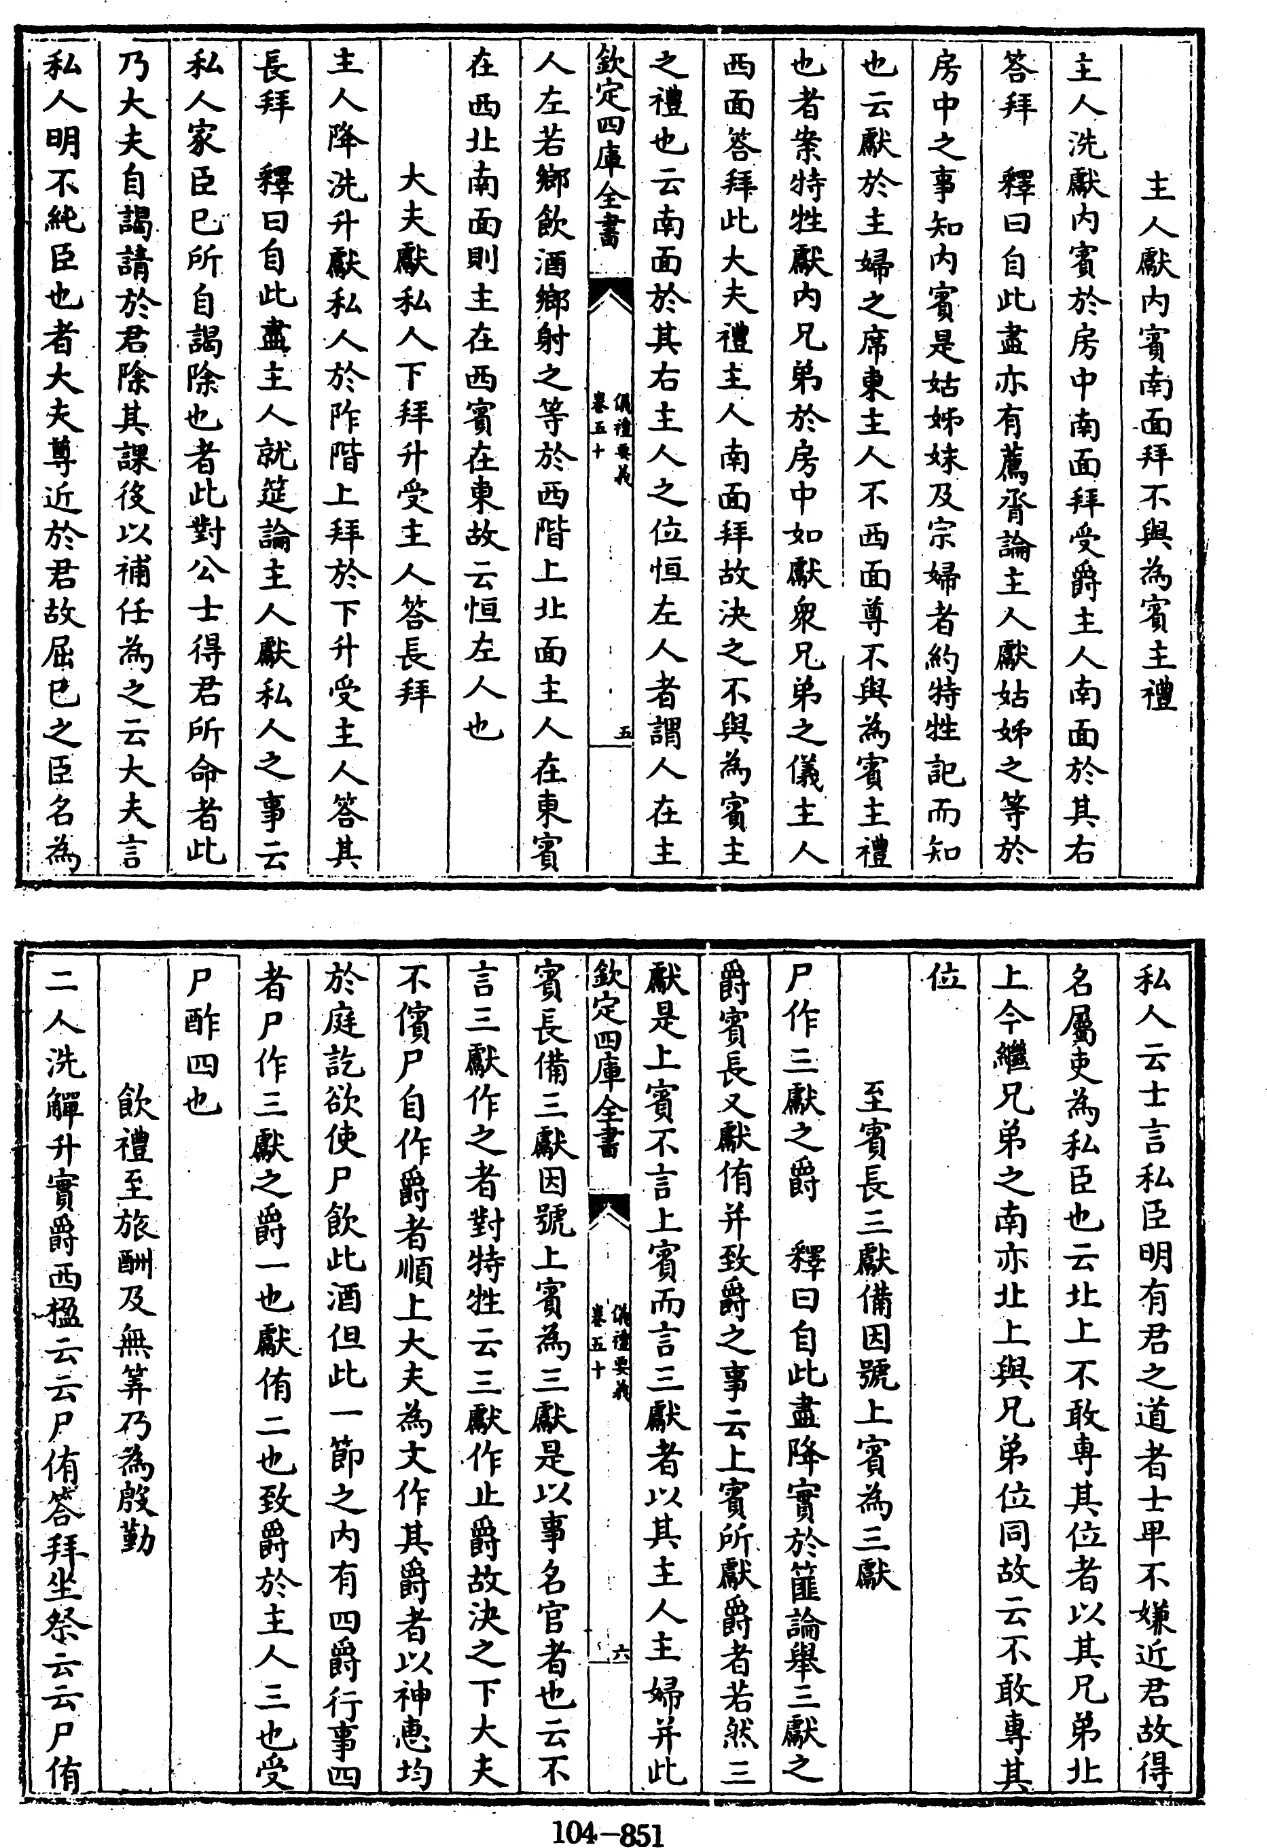 主人獻内賓南面拜不與為賓主禮
主人洗獻内賓於房中南面拜受爵主人南面於其右
答拜　釋曰自此盡亦有薦脀論主人獻姑姊之等於
房中之事知内賓是姑姊妹及宗婦者約特牲記而知
也云獻於主婦之席東主人不西面尊不與為賓主禮
也者案特牲獻内兄弟於房中如獻衆兄弟之儀主人
西面答拜此大夫禮主人南面拜故決之不與為賓主
之禮也云南面於其右主人之位恒左人者謂人在主
欽定四庫全書
儀禮要義
卷五十
五
人左若鄉飲酒鄉射之等於西階上北面主人在東賓
在西北南面則主在西賓在東故云恒左人也
大夫獻私人下拜升受主人答長拜
主人降洗升獻私人於阼階上拜於下升受主人答其
長拜　釋曰自此盡主人就筵論主人獻私人之事云
私人家臣已所自謁除也者此對公士得君所命者此
乃大夫自謁請於君除其課役以補任為之云大夫言
私人明不純臣也者大夫尊近於君故屈已之臣名為
私人云士言私臣明有君之道者士卑不嫌近君故得
名屬吏為私臣也云北上不敢専其位者以其兄弟北
上今繼兄弟之南亦北上與兄弟位同故云不敢専其
位
至賓長三獻備因號上賓為三獻
尸作三獻之爵　釋曰自此盡降實於篚論舉三獻之
爵賓長又獻侑并致爵之事云上賓所獻爵者若然三
獻是上賓不言上賓而言三獻者以其主人主婦并此
欽定四庫全書
儀禮要義
卷五十
六
賓長備三獻因號上賓為三獻是以事名官者也云不
言三獻作之者對特牲云三獻作止爵故決之下大夫
不儐尸自作爵者順上大夫為文作其爵者以神恵均
於庭訖欲使尸飲此酒但此一節之内有四爵行事四
者尸作三獻之爵一也獻侑二也致爵於主人三也受
尸酢四也
飲禮至旅酬及無筭乃為殷勤
二人洗觶升實爵西楹云云尸侑答拜坐祭云云尸侑
104-851